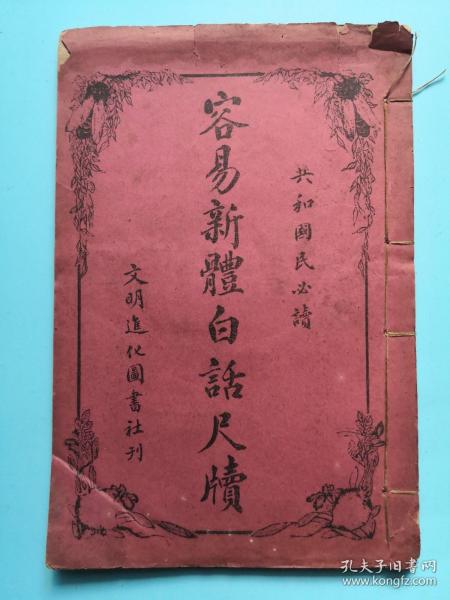 共和國民必讀
容易新體白話尺牘
文明進化圖書社刊
孔夫子旧书网
www.kongfz.com